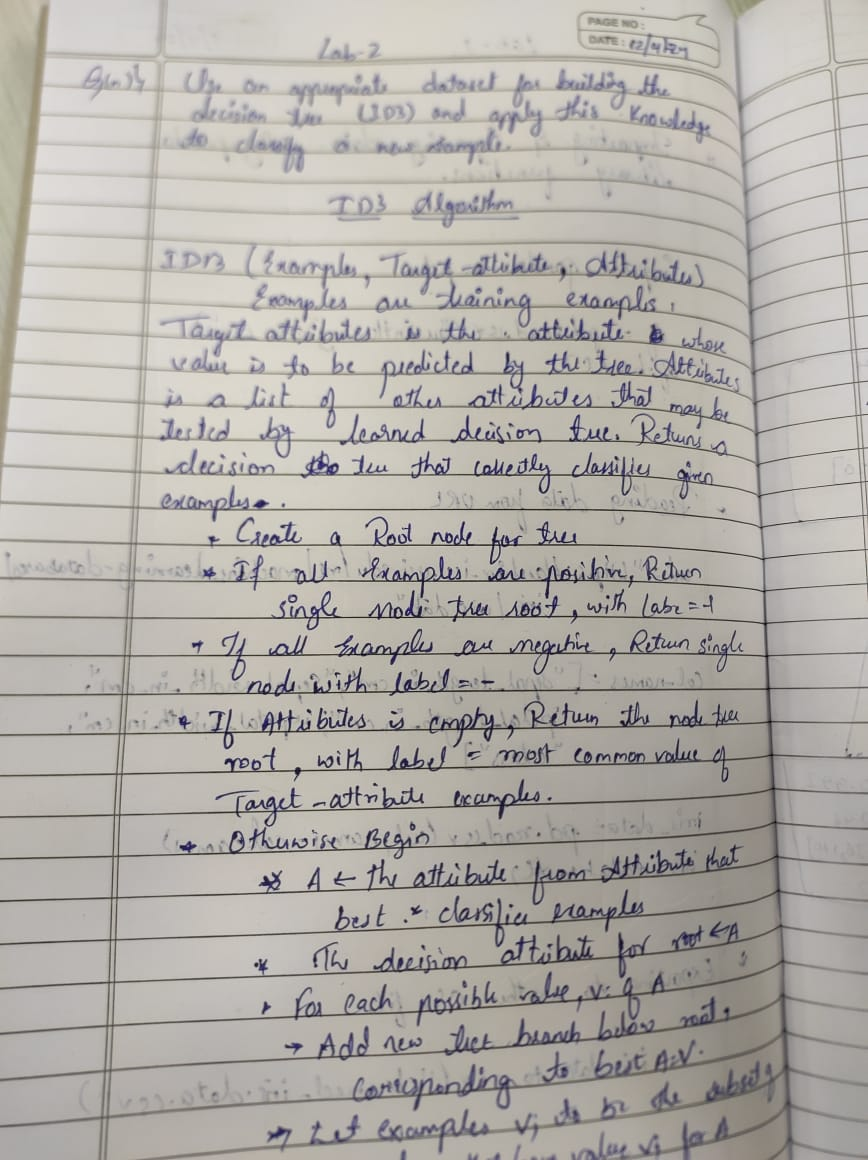 PAGE NO:
DATE: 02/4/24
Lab-2
Use an appropriate dataset for building the
decision tree (ID3) and apply this knowledge
to classify a new sample.
ID3 Algorithm
ID3 (Examples, Target-attribute, Attributes)
Examples are training examples.
Target attributes is the attribute whose
value is to be predicted by the tree. Attributes
is a list of other attributes that may be
tested by learned decision tree. Returns a
decision tree that correctly classifies given
examples.
* Create a Root node for tree
* If all examples are positive, Return
single node tree root, with
* If all Examples are negative, Return single
node with label = -
* If Attributes is empty, Return the node tree
root, with label = most common value of
Target-attribute examples.
* Otherwise Begin
* A ← the attribute from Attribute that
best * classifies examples
* The decision attribute for root ← A
* For each possible value, vi of A
→ Add new branch below root,
corresponding to A=V.
→ Let examples vi to be the subset of
value vi for A